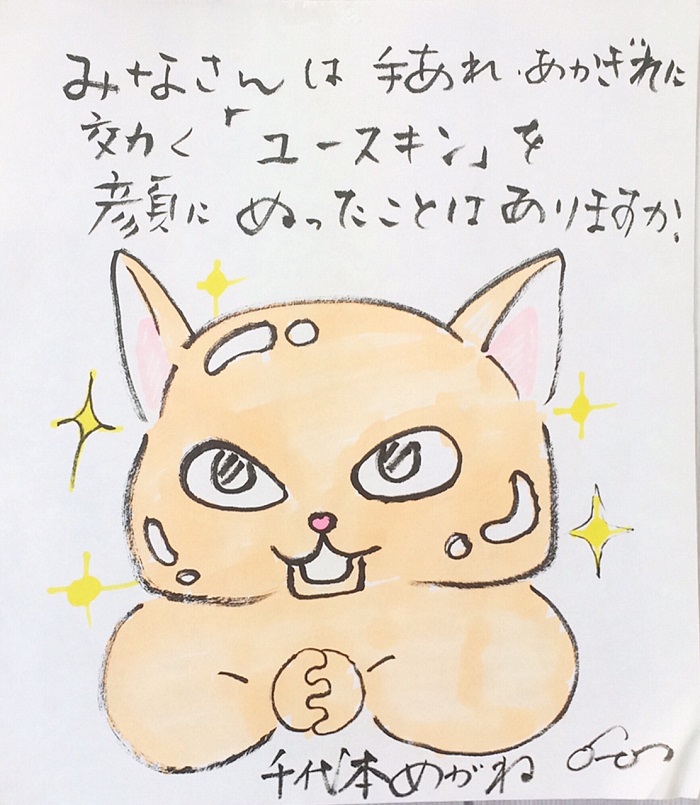 みなさんは 手あれ・あかぎれに
効く「ユースキン」を
顔に ぬったことはありますか?
千代本めがね